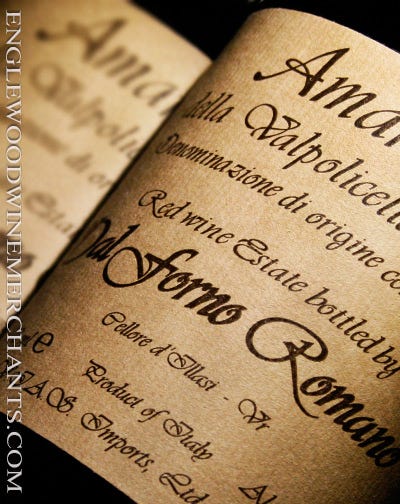 ENGLEWOODWINEMERCHANTS.COM
Amar
della Valpolicella
Denominazione di origine con
Red wine Estate bottled by
Dal Forno Romano
Cellore d'Illasi - Vr
e
Product of Italy
Imports, Ltd
Al
Ama
Valpo